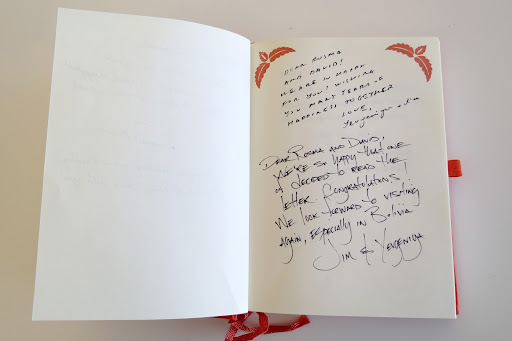 DEAR ROSMA
AND DAVID!
WE ARE SO HAPPY
FOR YOU! WISHING
YOU MANY YEARS OF
HAPPINESS TOGETHER
LOVE,
DEAR ROSMA AND DAVID,
WE'RE SO HAPPY THAT ONE
OF DECIDED TO READ THE
LETTER. CONGRATULATIONS!
WE LOOK FORWARD TO VISITING
AGAIN, ESPECIALLY IN BOLIVIA
JIM & YEVGENIYA